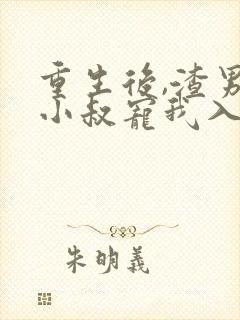 重生後,渣男
小叔寵我入
朱明義